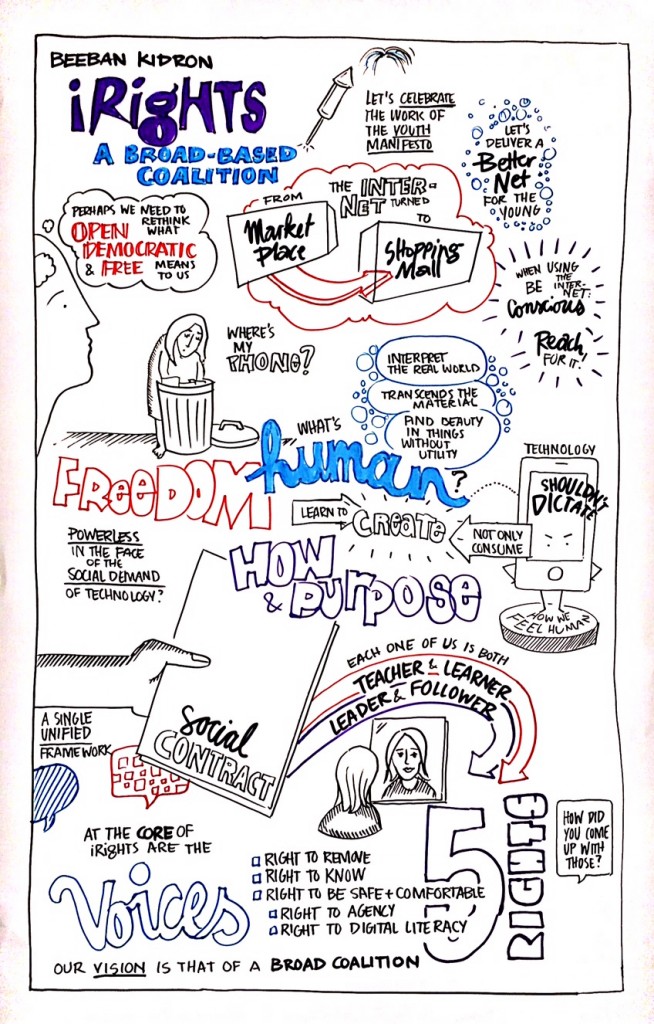 BEEBAN KIDRON
iRiGHTS
A BROAD-BASED
COALITION
LET'S CELEBRATE
THE WORK OF
THE YOUTH
MANIFESTO
LET'S
DELIVER A
Better
Net
FOR THE
YOUNG
PERHAPS WE NEED TO
RETHINK
WHAT
OPEN
DEMOCRATIC
& FREE MEANS
TO US
FROM
THE INTER-
NET TURNED
TO
Market
Place
Shopping
Mall
WHEN USING
THE
INTER-
NET:
BE
Conscious
Reach
FOR IT.
WHERE'S
MY
PHONE?
INTERPRET
THE REAL WORLD
TRANSCENDS THE
MATERIAL
FIND BEAUTY
IN THINGS
WITHOUT
UTILITY
WHAT'S
FREEDOM human?
TECHNOLOGY
SHOULDN'T
DICTATE
HOW WE
FEEL HUMAN
LEARN TO
CREATE
NOT ONLY
CONSUME
POWERLESS
IN THE FACE
OF THE
SOCIAL DEMAND
OF TECHNOLOGY?
HOW
& PURPOSE
EACH ONE OF US IS BOTH
TEACHER & LEARNER
LEADER & FOLLOWER
Social
CONTRACT
A SINGLE
UNIFIED
FRAMEWORK
AT THE CORE OF
iRIGHTS ARE THE
Voices
5
RIGHTS
RIGHT TO REMOVE
RIGHT TO KNOW
RIGHT TO BE SAFE + COMFORTABLE
RIGHT TO AGENCY
RIGHT TO DIGITAL LITERACY
HOW DID
YOU COME
UP WITH
THOSE?
OUR VISION IS THAT OF A BROAD COALITION